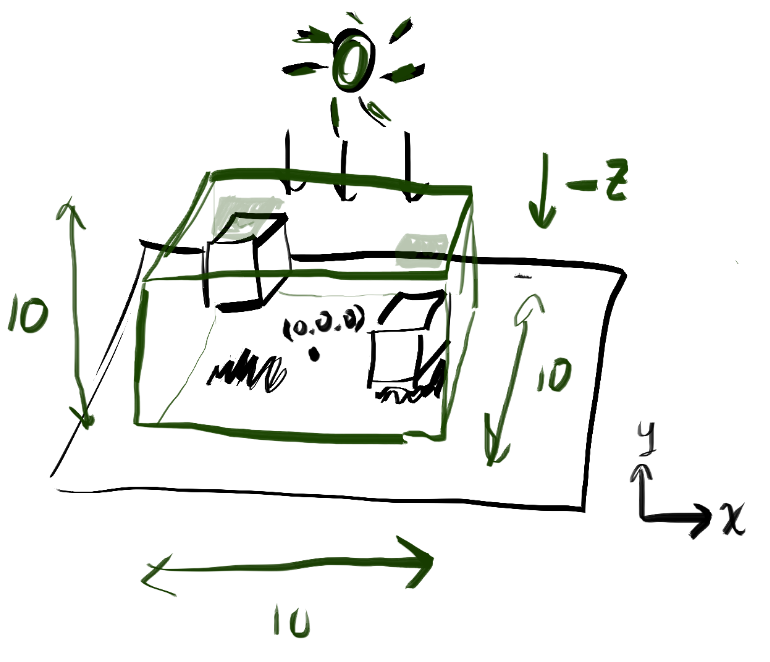 -Z
10
(0.0.0)
10
y
x
10